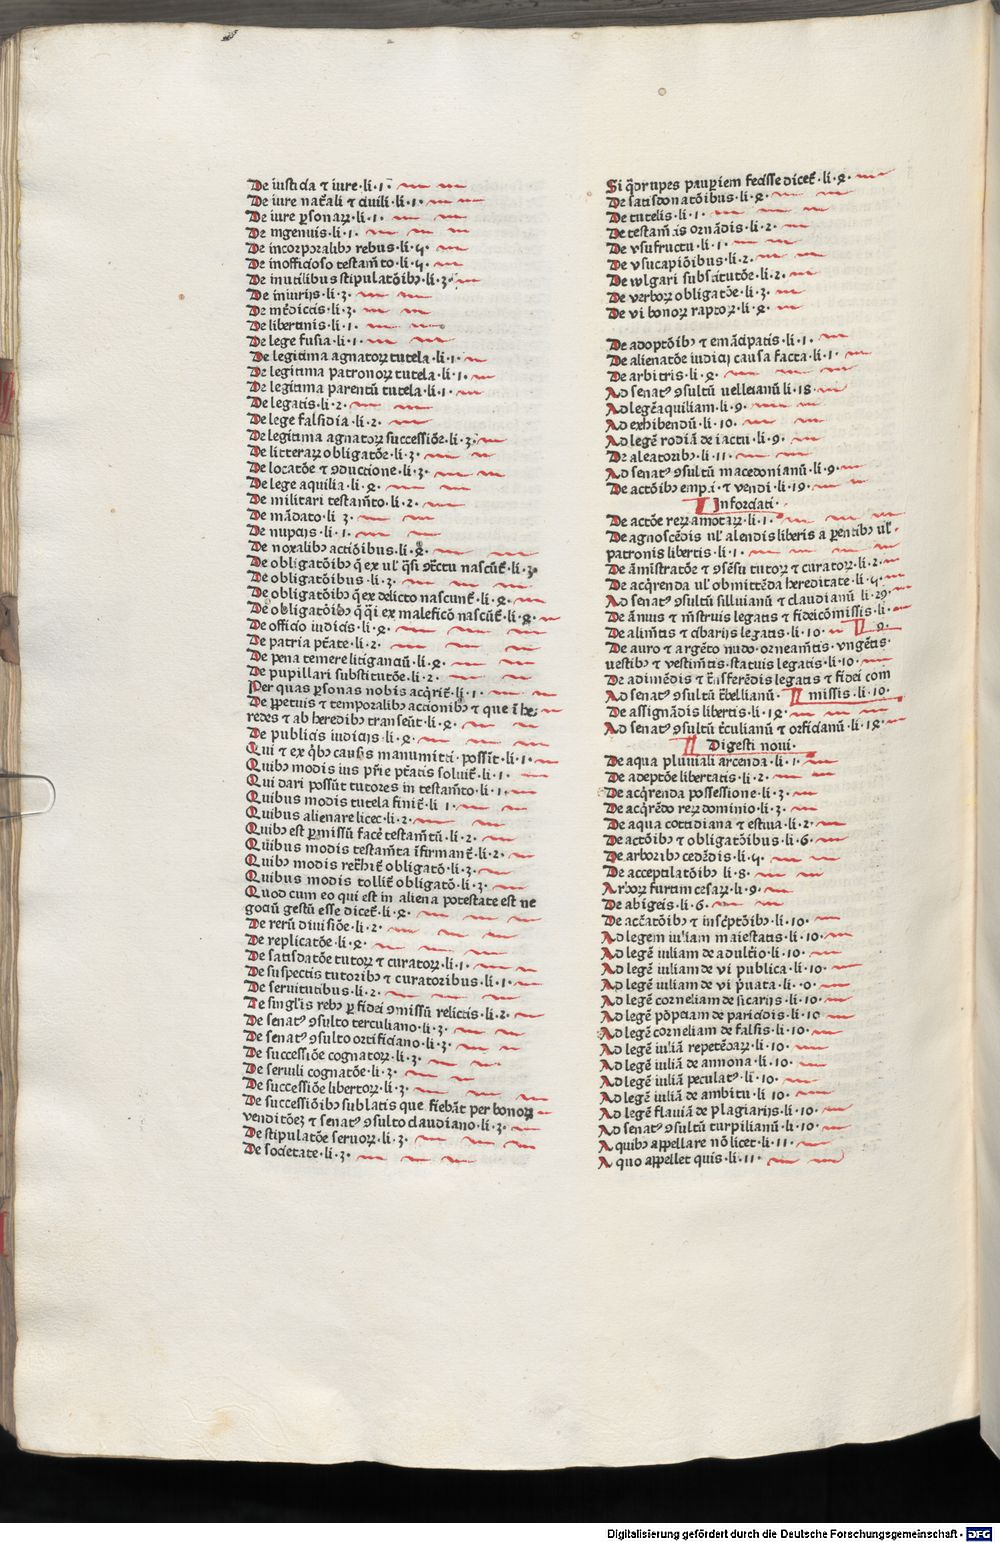 De iusticia ⁊ iure·li·1·
De iure nat̄ali ⁊ ciuili·li·1·
De iure ꝑsonaꝝ·li·1·
De ingenuis·li·1·
De incorꝑalibꝰ rebus·li·4·
De inofficioso testam̄to·li·4·
De inutilibus stipulatōibꝰ·li·3·
De iniurijs·li·3·
De mēdicis·li·3·
De libertinis·li·1·
De lege fusia·li·1·
De legitima agnatoꝝ tutela·li·1·
De legitima patronoꝝ tutela·li·1·
De legitima parentū tutela·li·1·
De legatis·li·2·
De lege falsidia·li·2·
De legitima agnatoꝝ successiōe·li·3·
De litteraꝝ obligatōe·li·3·
De locatōe ⁊ ꝯductione·li·3·
De lege aquilia·li·ꝝ·
De militari testam̄to·li·2·
De mādato·li 3·
De nupcijs·li·1·
De noxalibꝰ actiōibus·li·ꝝ·
De obligatōibꝰ q̄ ex ul' q̄si ꝯtr̄ctu nascūt̄·li·3·
De obligatōibus·li·3·
De obligatōibꝰ q̄ ex delicto nascunt̄·li·ꝝ·
De obligatōibꝰ q̄ q̄i ex maleficō nascūt̄·li·ꝝ·
De officio iudicis·li·ꝝ·
De patria ptāte·li·2·
De pena temere litiganciū·li·ꝝ·
De pupillari substitutōe·li·2·
Per quas ꝑsonas nobis acq̄rit̄·li·1·
De ꝑpetuis ⁊ temporalibꝰ accionibꝰ ⁊ que ī he
redes ⁊ ab heredibꝰ transeūt·li·ꝝ·
De publicis iudicijs·li·ꝝ·
Qui ⁊ ex q̄bꝰ causis manumitti·possīt·li·1·
Quibꝰ modis ius pr̄ie pt̄atis soluit̄·li·1·
Qui dari possūt tutores in testam̄to·li·1·
Quibus modis tutela finit̄·li 1·
Quibus alienare licet·li·2·
Quibꝰ est ꝑmissū facē testam̄tū·li·2·
Quibus modis testam̄ta īfirmant̄·li·2·
Quibꝰ modis ret̄hit̄ obligatō·li·3·
Quibus modis tollit̄ obligatō·li·3·
Quod cum eo qui est in aliena potestate est ne
gociū gestū esse dicet̄·li·ꝝ·
De rerū diuisiōe·li·2·
De replicatōe·li·ꝝ·
De satisdatōe tutoꝝ ⁊ curatoꝝ·li·1·
De suspectis tutoribꝰ ⁊ curatoribus·li·1·
De seruitutibus·li·2·
De singl'is rebꝰ ꝑ fidei ꝯmissū relictis·li·2·
De senatꝰ ꝯsulto terculiano·li·3·
De senatꝰ ꝯsulto ortificiano·li·3·
De successiōe cognatoꝝ·li·3·
De seruili cognatōe·li·3·
De successiōe libertoꝝ·li·3·
De successiōibꝰ sublatis que fiebāt per bonoꝝ
venditōeꝫ ⁊ senatꝰ ꝯsulto claudiano·li·3·
De stipulatōe seruoꝝ·li·3·
De societate·li·3·
Si q̄drupes pauꝑiem fecisse dicet̄·li·ꝝ·
De satisdonatōibus·li·ꝝ·
De tutelis·li·1·
De testam̄tis ornādis·li·2·
De vsufructu·li·1·
De vsucapiōibus·li·2·
De wlgari substitutōe·li·2·
De verboꝝ obligatōe·li·3·
De vi bonoꝝ raptoꝝ·li·ꝝ·
De adoptōibꝰ ⁊ emācipatis·li·1·
De alienatōe iudicij causa facta·li·1·
De arbitris·li·ꝝ·
Ad senatꝰ ꝯsultū velleianū·li·18·
Ad legē aquiliam·li·9·
Ad exhibendū·li·10·
Ad legē rodiā de iactu·li·9·
De aleatoribꝰ·li·11·
Ad senatꝰ ꝯsultū macedonianū·li·9·
De actōibꝰ emp.i·⁊ vendi·li·19·
¶ Inforciati·
De actōe reꝝ amotaꝝ·li·1·
De agnoscēdis ul' alendis liberis a ꝑentibꝰ ul'
patronis libertis·li·1·
De am̄istratōe ⁊ ꝯsēsu tutoꝝ ⁊ curatoꝝ·li·2·
De acq̄renda ul' obmittēda hereditate·li·4·
Ad senatꝰ ꝯsultū silluianū ⁊ claudianū·li·29·
De ānuis ⁊ m̄struis legatis ⁊ fideicōmissis·li·
De alim̄tis ⁊ cibarijs legatis·li·10· ¶ 9·
De auro ⁊ argēto mūdo·orneam̄tis·vngētis·
uestibꝰ ⁊ vestim̄tis·statuis legatis·li·10·
De adimēdis ⁊ trāsferēdis legatis ⁊ fidei com
Ad senatꝰ ꝯsultū tr̄bellianū· ¶ missis·li·10·
De assignādis libertis·li·1ꝝ·
Ad senatꝰ ꝯsultū tr̄culianū ⁊ orficianū·li·1ꝝ·
¶ Digesti noui·
De aqua pluuiali arcenda·li·1·
De adeptōe libertatis·li·2·
De acq̄renda possessione·li·3·
De acq̄rēdo reꝝ dominio·li·3·
De aqua cottidiana ⁊ estiua·li·2·
De actōibꝰ ⁊ obligatōibus·li·6·
De arboribꝰ cedēdis·li·4·
De acceptilatōibꝰ li·8·
Arboꝝ furtim cesaꝝ·li·9·
De abigeis·li·6·
De acc̄atōibꝰ ⁊ insc̄ptōibꝰ·li·10·
Ad legem iuliam maiestatis·li·10·
Ad legē iuliam de adult̄io·li·10·
Ad legē iuliam de vi publica·li·10·
Ad legē iuliam de vi p̄uata·li·10·
Ad legē corneliam de sicarijs·li·10·
Ad legē pōpeiam de paricidis·li·10
Ad legē corneliam de falsis·li·10·
Ad legē iuliā repetēdaꝝ·li·10·
Ad legē iuliā de annona·li·10·
Ad legē iuliā peculatꝰ·li·10·
Ad legē iuliā de ambitu·li·10·
Ad legē flauiā de plagiarijs·li·10·
Ad senatꝰ ꝯsultū turpilianū·li·10·
A quibꝰ appellare nō licet·li·11·
A quo appellet quis·li·11·
Digitalisierung gefördert durch die Deutsche Forschungsgemeinschaft - DFG